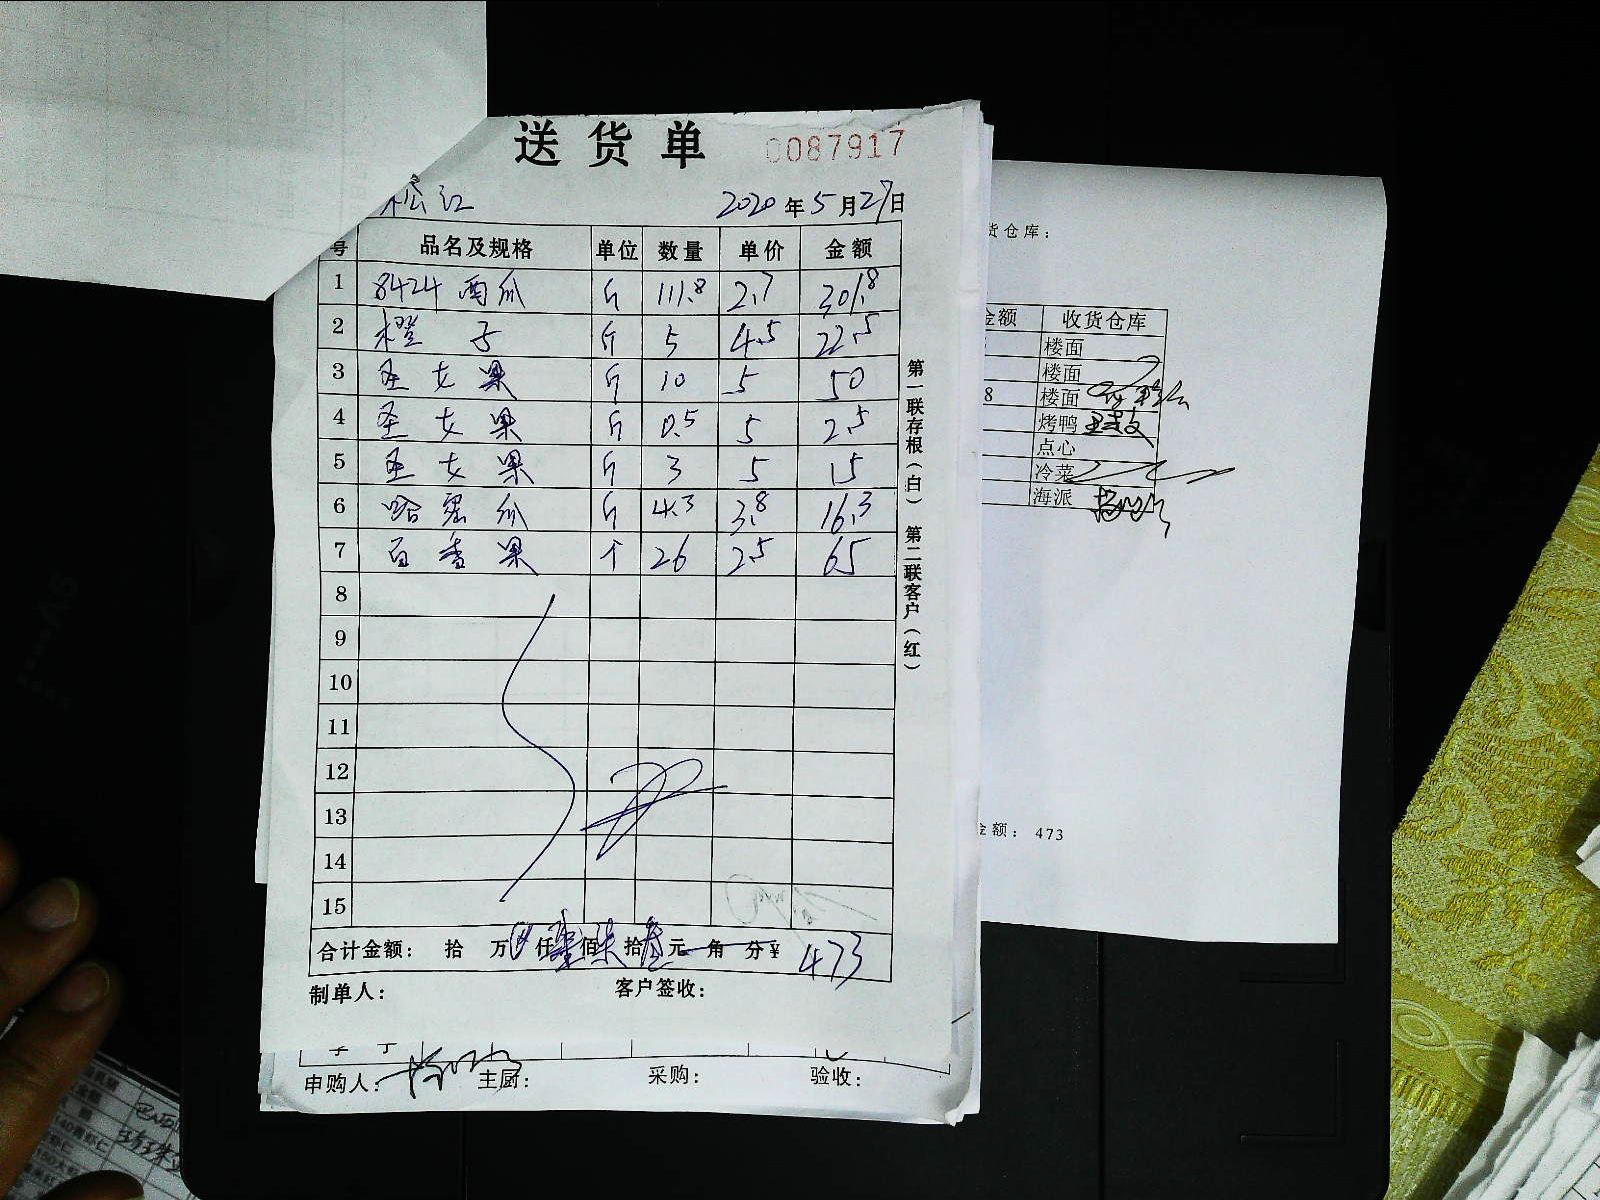 送货单 0087917
松江 2020年5月27日
号 品名及规格 单位 数量 单价 金额
1 8424西瓜 斤 111.8 2.7 301.8
2 橙子 斤 5 4.5 22.5
3 圣女果 斤 10 5 50
4 圣女果 斤 0.5 5 2.5
5 圣女果 斤 3 5 15
6 哈密瓜 斤 4.3 3.8 16.3
7 百香果 个 26 2.5 65
8
9
10
11
12
13
14
15
合计金额: 拾 万 仟 佰柒拾叁元 角 分¥ 473
制单人: 客户签收:
第一联存根(白) 第二联客户(红)
申购人: 主厨: 采购: 验收:
货仓库:
金额 收货仓库
楼面
楼面
8 楼面
烤鸭
点心
冷菜
海派
金额: 473